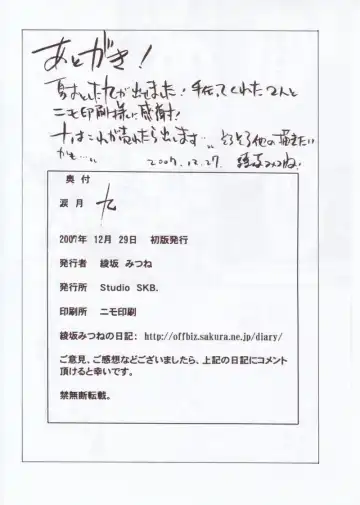 あとがき!
夏はとしたれが出せました!手伝ってくれた2人と
ニモ印刷様に感謝!
十はこれが売れたら出します…そろそろ他の描きたい
かも…"
2007.12.27. 綾坂みつね!
奥付
涙月 九
2007年 12月 29日 初版発行
発行者 綾坂 みつね
発行所 Studio SKB.
印刷所 ニモ印刷
綾坂みつねの日記: http://offbiz.sakura.ne.jp/diary/
ご意見、ご感想などございましたら、上記の日記にコメント
頂けると幸いです。
禁無断転載。